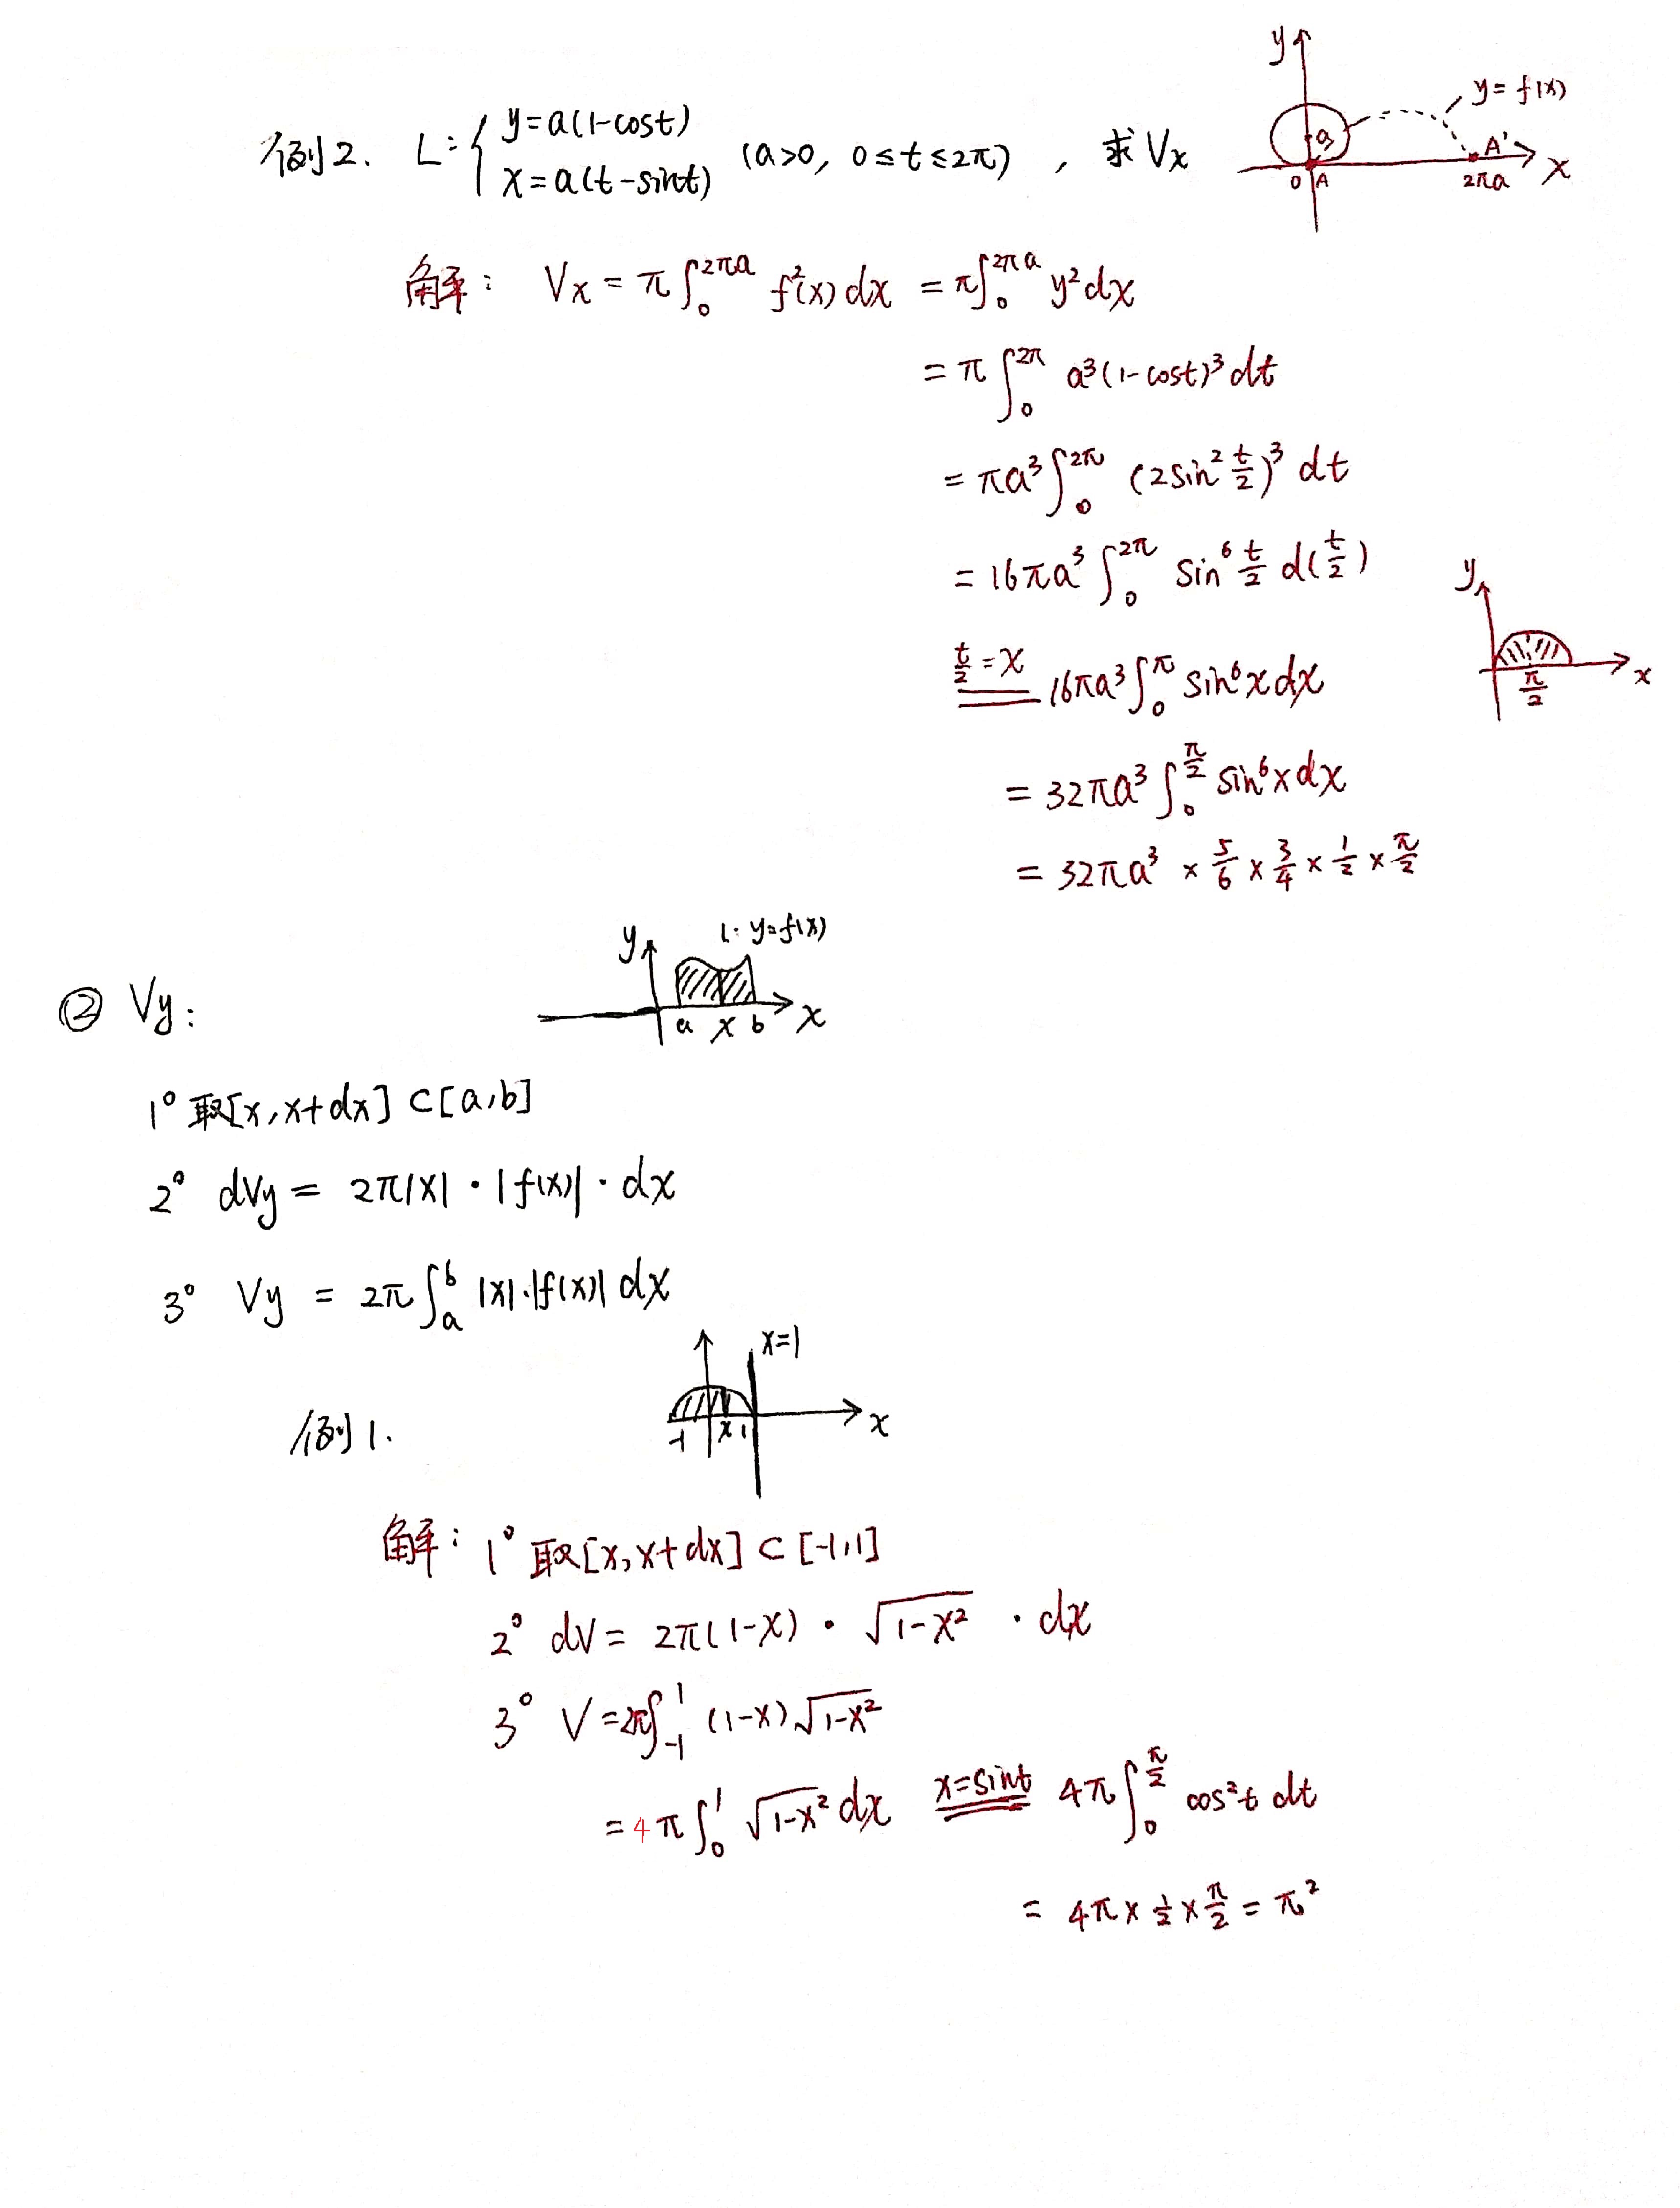 例2. L: { y=a(1-cost)
x=a(t-sint) (a>0, 0≤t≤2π) , 求Vx
y
y=f(x)
a
0 A
A'
2πa
x
解: Vx = π∫₀^{2πa} f²(x)dx = π∫₀^{2πa} y²dx
= π∫₀^{2π} a³(1-cost)³dt
= πa³∫₀^{2π} (2sin² t/2)³ dt
= 16πa³∫₀^{2π} sin⁶ t/2 d(t/2)
t/2=x 16πa³∫₀^{π} sin⁶xdx
y
π/2
x
= 32πa³∫₀^{π/2} sin⁶xdx
= 32πa³ × 5/6 × 3/4 × 1/2 × π/2
② Vy:
y
L: y=f(x)
a x b x
1° 取[x,x+dx]⊂[a,b]
2° dVy = 2π|x|·|f(x)|·dx
3° Vy = 2π∫ₐᵇ |x|·|f(x)|dx
例1.
x=1
-1 x 1 x
解: 1° 取[x,x+dx]⊂[-1,1]
2° dV = 2π(1-x)·√(1-x²)·dx
3° V=2π∫₋₁¹ (1-x)√(1-x²)
=4π∫₀¹ √(1-x²) dx x=sint 4π∫₀^{π/2} cos²t dt
= 4π×1/2×π/2=π²